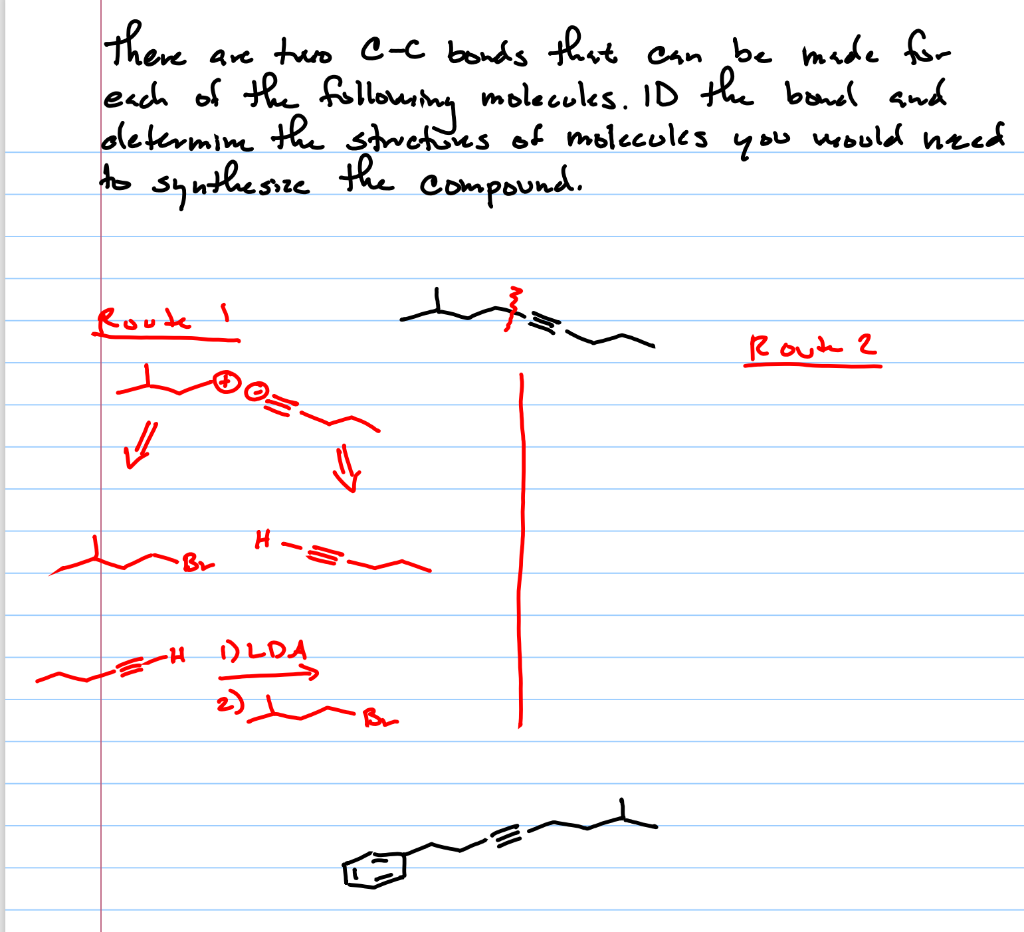 There are two C-C bonds that can be made for
each of the following molecules. ID the bond and
determine the structures of molecules you would need
to synthesize the compound.
Route 1
Route 2
+ -
Br
H
H 1) LDA
2) Br